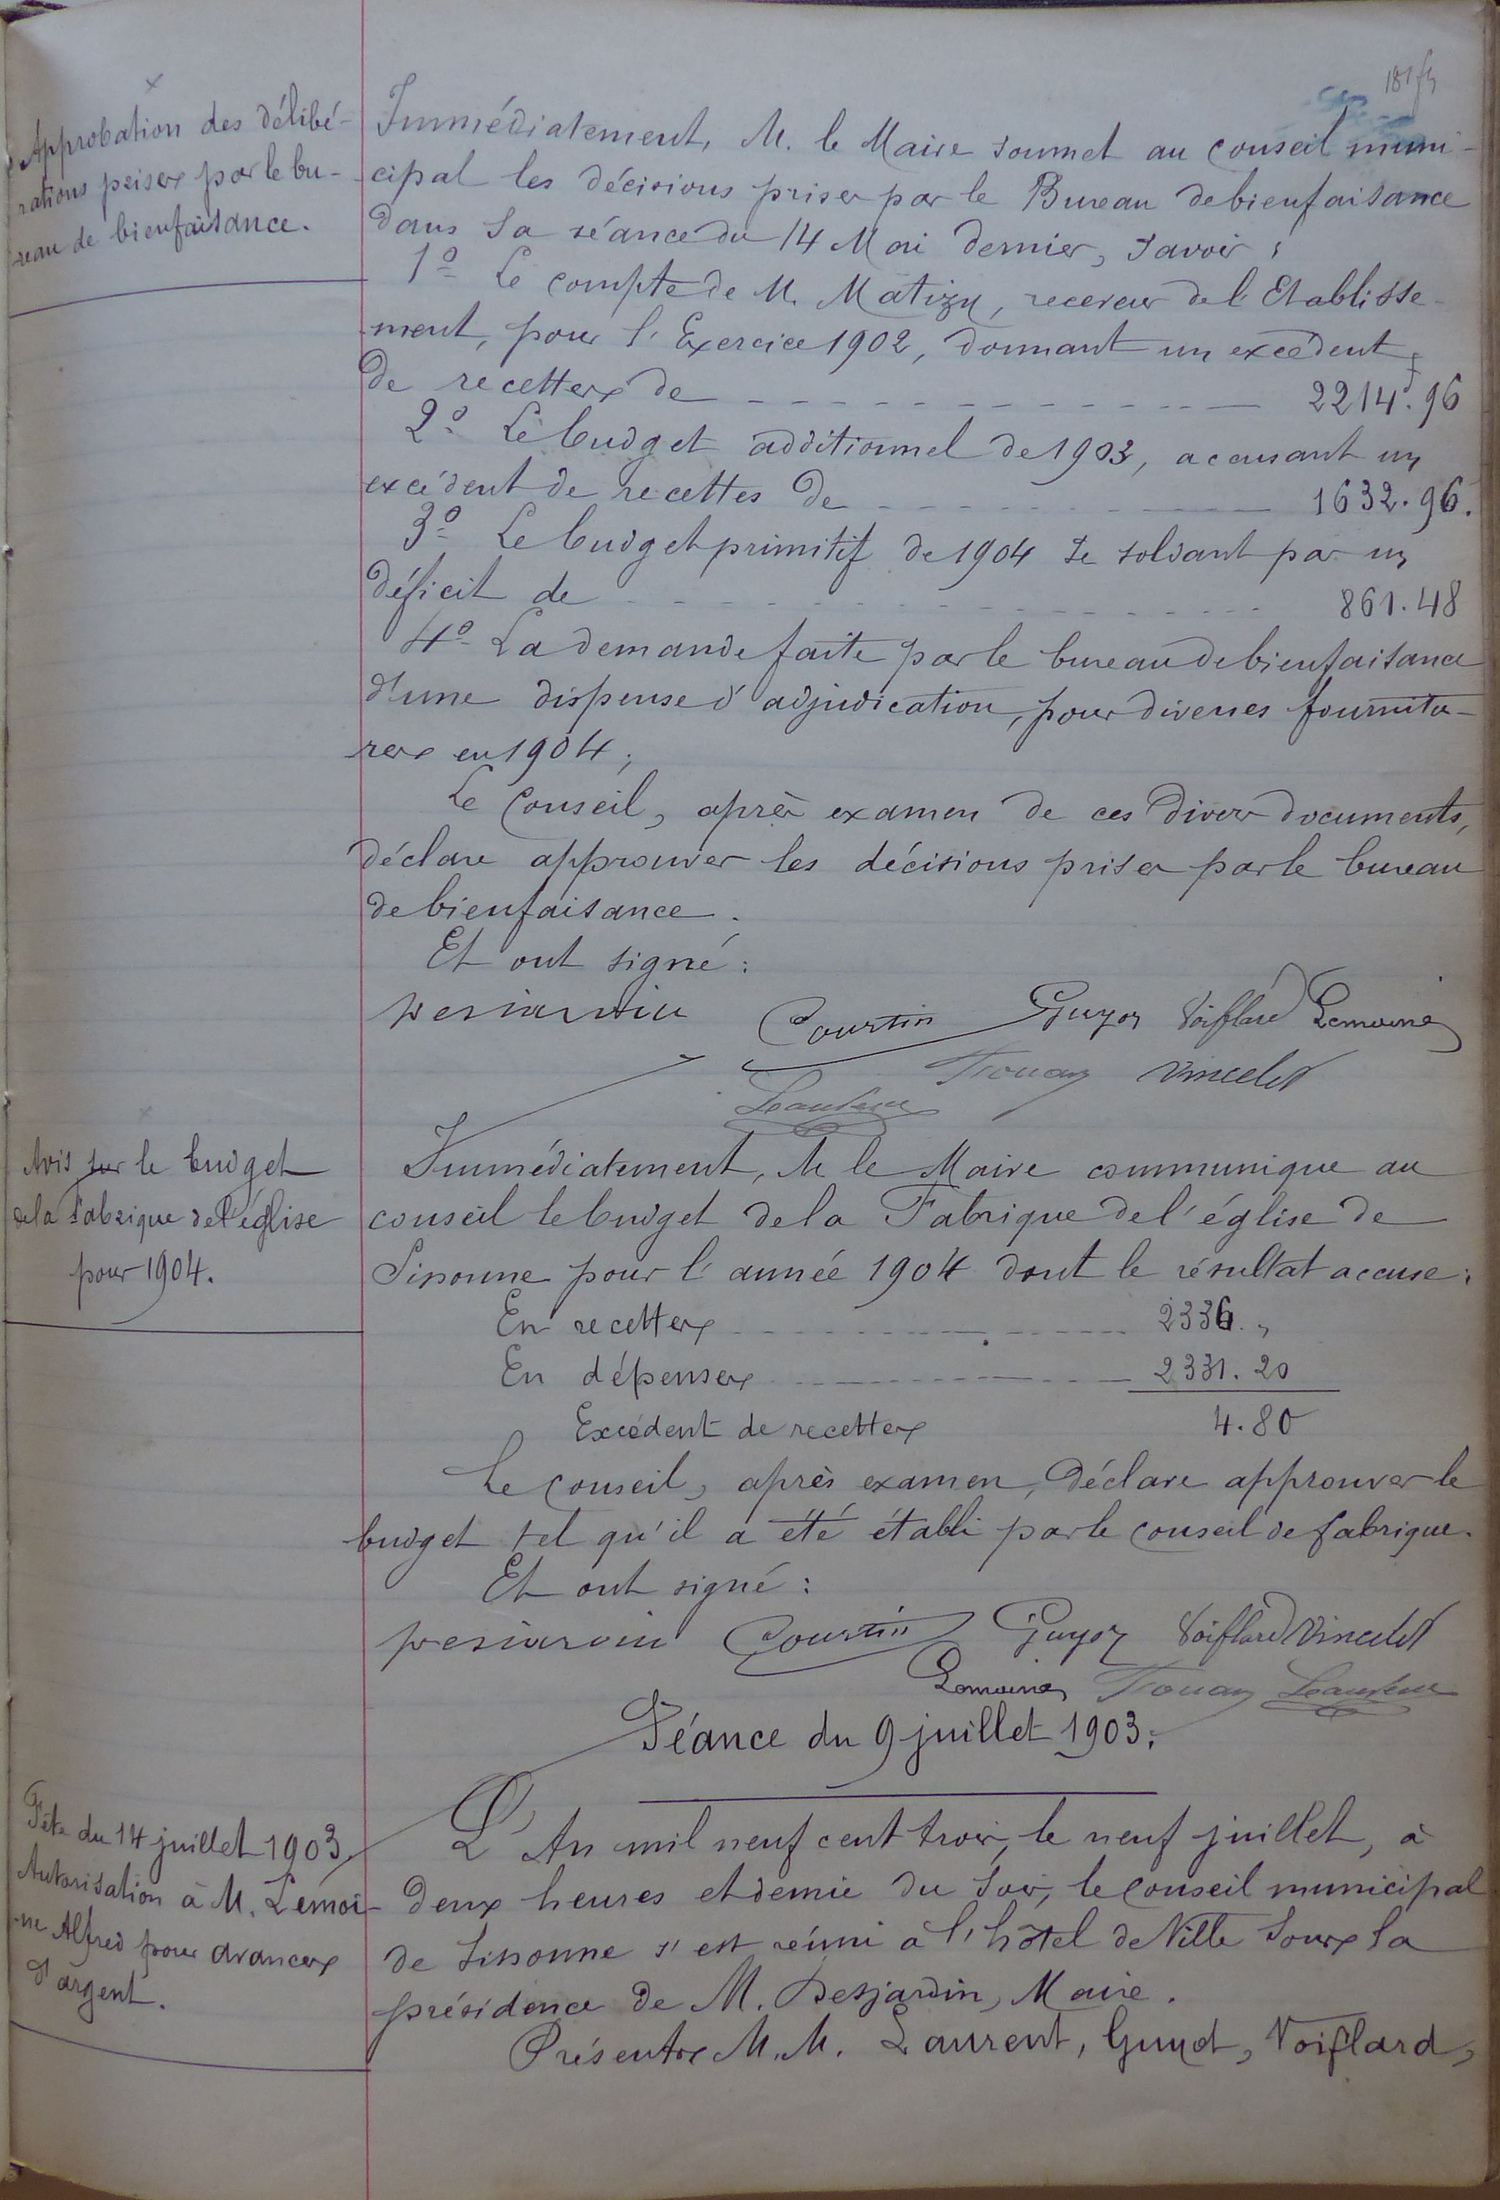 Approbation des délibé-
rations prises par le bu-
reau de bienfaisance.
Immédiatement, M. le Maire soumet au conseil muni-
cipal les décisions prises par le Bureau de bienfaisance
dans sa séance du 14 Mai dernier, savoir :
1º Le compte de M. Matizy, receveur de l'Etablisse-
ment, pour l'Exercice 1902, donnant un excédent
de recettes de 2214f.96
2º Le budget additionnel de 1903, accusant un
excédent de recettes de 1632.96.
3º Le budget primitif de 1904 se soldant par un
déficit de 861.48
4º La demande faite par le bureau de bienfaisance
d'une dispense d'adjudication, pour diverses fournitu-
res en 1904 ;
Le Conseil, après examen de ces divers documents,
déclare approuver les décisions prises par le bureau
de bienfaisance.
Et ont signé :
Desjardin Courtin Guyot Voiflard Lemoine
Vincelet
Avis sur le budget
de la Fabrique de l'église
pour 1904.
Immédiatement, M le Maire communique au
conseil le budget de la Fabrique de l'église de
Sissonne pour l'année 1904 dont le résultat accuse :
En recettes 2336. "
En dépenses 2331.20
Excédent de recettes 4.80
Le Conseil, après examen, déclare approuver le
budget tel qu'il a été établi par le conseil de fabrique.
Et ont signé :
Desjardin Courtin Guyot Voiflard Vincelet
Lemoine
Séance du 9 juillet 1903.
Fête du 14 juillet 1903
Autorisation à M. Lemoi-
ne Alfred pour avances
d'argent.
L'An mil neuf cent trois, le neuf juillet, à
deux heures et demie du soir, le Conseil municipal
de Sissonne s'est réuni à l'hôtel de Ville sous la
présidence de M. Desjardin, Maire.
Présents M.M. Laurent, Guyot, Voiflard,